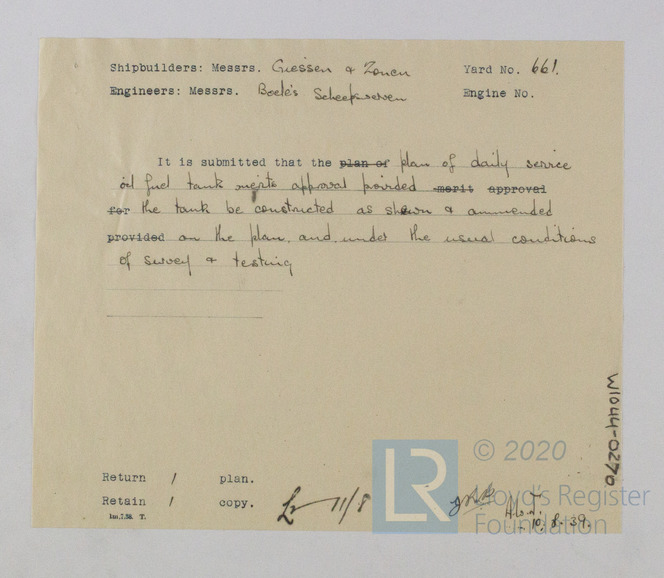 Shipbuilders: Messrs. Giessen & Zonen Yard No. 661.
Engineers: Messrs. Boele's Scheepswerven Engine No.
It is submitted that the plan of plan of daily service
oil fuel tank merits approval provided merit approval
for the tank be constructed as shown & ammended
provided on the plan, and under the usual conditions
of survey & testing
Return 1 plan.
Retain 1 copy.
1m.7.38. T.
11/8
10.8.39.
W1044-0270
© 2020
LR
Lloyd's Register
Foundation